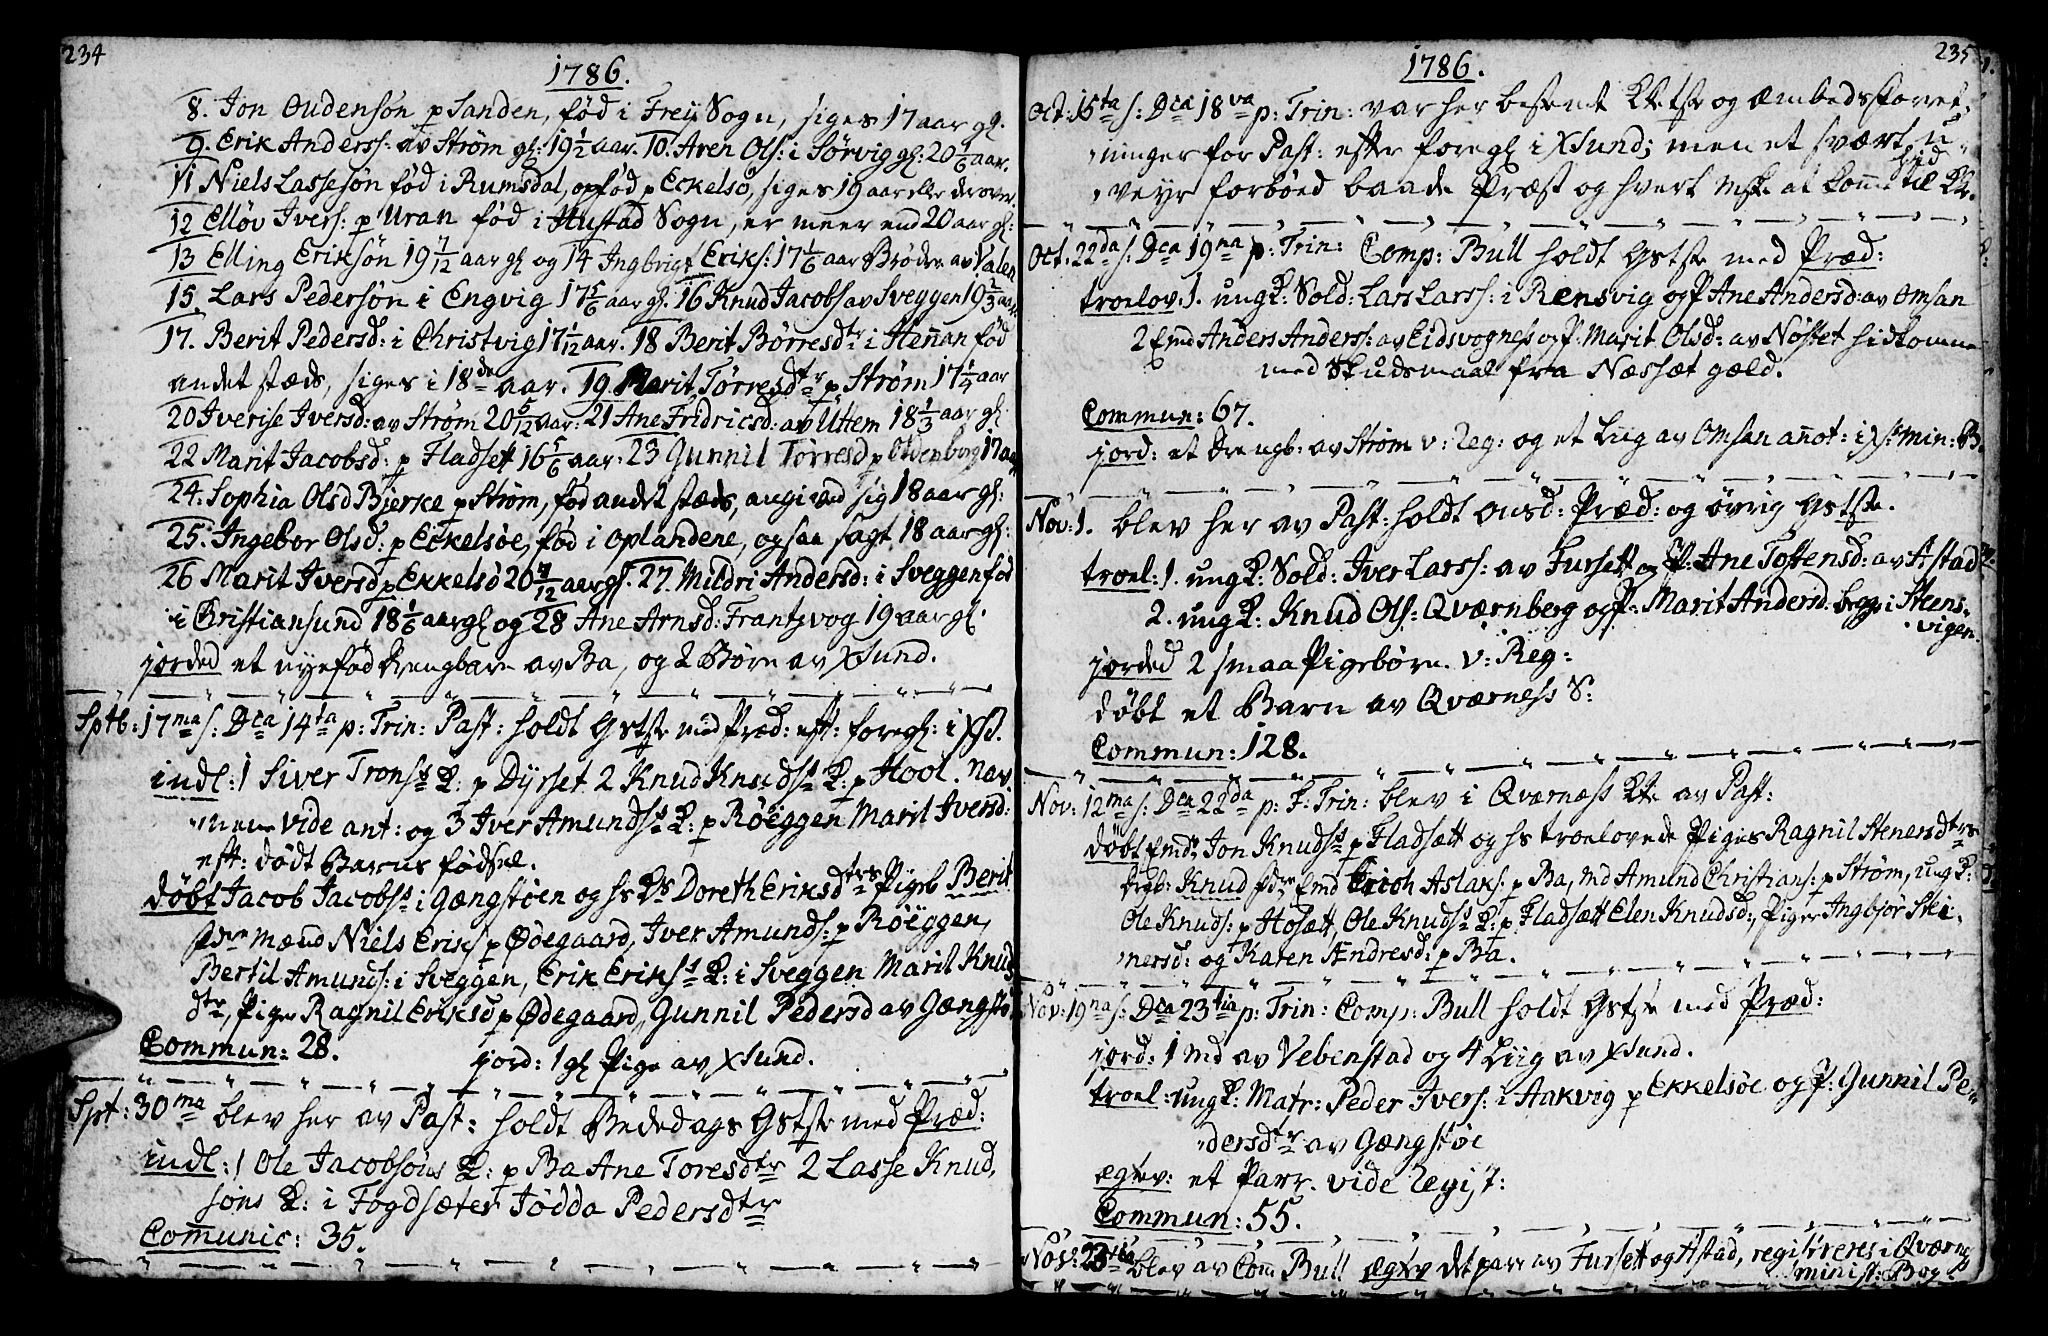 234
1786.
8. Jon Oudensøn p Sanden, fød i Frey Sogn, siges 17 aar gl.
9. Erik Anderss: av Strøm gl: 19 1/2 aar. 10. Aren Ols: i Sørvig gl: 20 1/6 aar.
11 Niels Lassesøn fød i Rumsdal, opfød p Eckelsø, siges 19 aar eller derover.
12 Elløv Ivers: p Uran fød i Hustad Sogn, er meer end 20 aar gl:
13 Elling Eriksøn 19 7/12 aar gl og 14 Ingbrigt Eriks: 17 1/6 aar Brødre av Valen
15. Lars Pedersøn i Engvig 17 5/6 aar gl. 16 Knud Jacobs av Sveggen 19 2/3 aar
17. Berit Pedersd: i Christvig 17 1/12 aar. 18 Berit Børresdtr i Hennan fød
andet stæds, siges i 18de aar. 19. Marit Tørresdtr p Strøm 17 1/4 aar
20 Iverise Iversd: av Strøm 20 5/12 aar: 21 Ane Fridricsd: av Uttem 18 1/3 aar gl:
22 Marit Jacobsd: p Fladsett 16 5/6 aar: 23 Gunnil Tørresd p Oldenborg 17 aar
24. Sophia Olsd Bjerke p Strøm, fød andet stæds, angived sig 18 aar gl:
25. Ingebor Olsd: p Eckelsøe, fød i Oplandene, ogsaa sagt 18 aar gl:
26 Marit Iversd p Ekkelsö 20 7/12 aar gl. 27. Mildri Andersd: i Sveggen fød
i Christiansund 18 1/6 aar gl og 28 Ane Arnsd: Frantzvog 19 aar gl.
jorded et nyefød drengbarn av Ba, og 2 Børn av XSund.
Sptb: 17ma s: Dca 14ta p: Trin: Past: holdt Gstste med Præd: eft: foregl: i XSd.
indl: 1 Siver Tronss K: p Dyrset 2 Knud Knudss K: p Hool. nav
men vide ant: og 3 Iver Amundss K: p Røeggen Marit Iversd:
eft: dødt Barns fødsel.
døbt Jacob Jacobss i Gængstøen og hs Ks Doreth Eriksdtrs Pigeb Berit
fdre mænd Niels Eriks p Ødegaard, Iver Amunds: p Røeggen,
Bertil Amunds: i Sveggen, Erik Erikss K: i Sveggen Marit Knuds
dtr, Piger Ragnil Eriksd p Ødegaard, Gunnil Pedersd av Gængstø
Commun: 28. jord: 1 gl Pige av XSund.
Spt: 30ma blev her av Past: holdt Bededags Gstste med Præd:
indl: 1 Ole Jacobsøns K: p Ba Ane Toresdtr 2 Lasse Knud,
søns K: i Fogdsæter Jødda Pedersdtr
Comunic: 35.
235
1786.
Oct: 15ta s: Dca 18va p: Trin: var her bestemt Ktste og Embedsforret,
ninger for Past: efter foregl i XSund; men et svært u,
veyr forbøed baade Præst og hvert mske at komme hid til K.
Oct: 22da s: Dca 19na p: Trin: Comp: Bull holdt Gstste med Præd:
troelov: 1. ungK: Sold: Lars Larss: i Rensvig og P Ane Andersd: av Omsan
2 Emd Anders Anderss: av Eidsvogness og P: Marit Olsd: av Nøstet hidkomne
med Skudsmaal fra Næssæt gæld.
Commun: 67.
jord: et drengb: av Strøm v: Reg: og et Liig av Omsan annot: i XS: min: B.
Nov: 1. blev her av Past: holdt onsd: Præd: og øvrig Gstste.
troel: 1. ungK: Sold: Iver Larss: av Fursett og P: Ane Tostensd: av Astad
2. ungK: Knud Ols: Qværnberg og P: Marit Andersd. begge i Steens,
vigen.
jorded 2 smaa Pigebørn. v: Reg:
døbt et Barn av Qværness S:
Commun: 128.
Nov: 12ma s: Dca 22da p: F: Trin: blev i Qværness Kke av Past:
døbt Emds Jon Knudss p Fladsætt og hs troelovede Piges Ragnil Stenersdtrs
drgb: Knud fdre Emd Erich Aslaks: p Ba, Md Amund Christians: p Strøm, ungK:
Ole Knuds: p Hosætt, Ole Knudss K: p Fladsætt Elen Knudsd:, Piger Ingbjor Ste,
nersd: og Karen Andresd: p Ba.
Nov: 19na s: Dca 23tia p: Trin: Comp: Bull holdt Gstste med Præd:
jord: 1 Md av Vebenstad og 4 Liig av XSund.
troel: ungK: Matr: Peder Ivers: i Aakvig p Ekkelsøe og P: Gunnil Pe,
dersdtr av Gængstøe
egtev: et Parr. vide Regist:
Commun: 55.
Nov: 23tia blev av Com Bull egtev det parr av Fursett og Astad, registreres i Qværness
minist: Bog